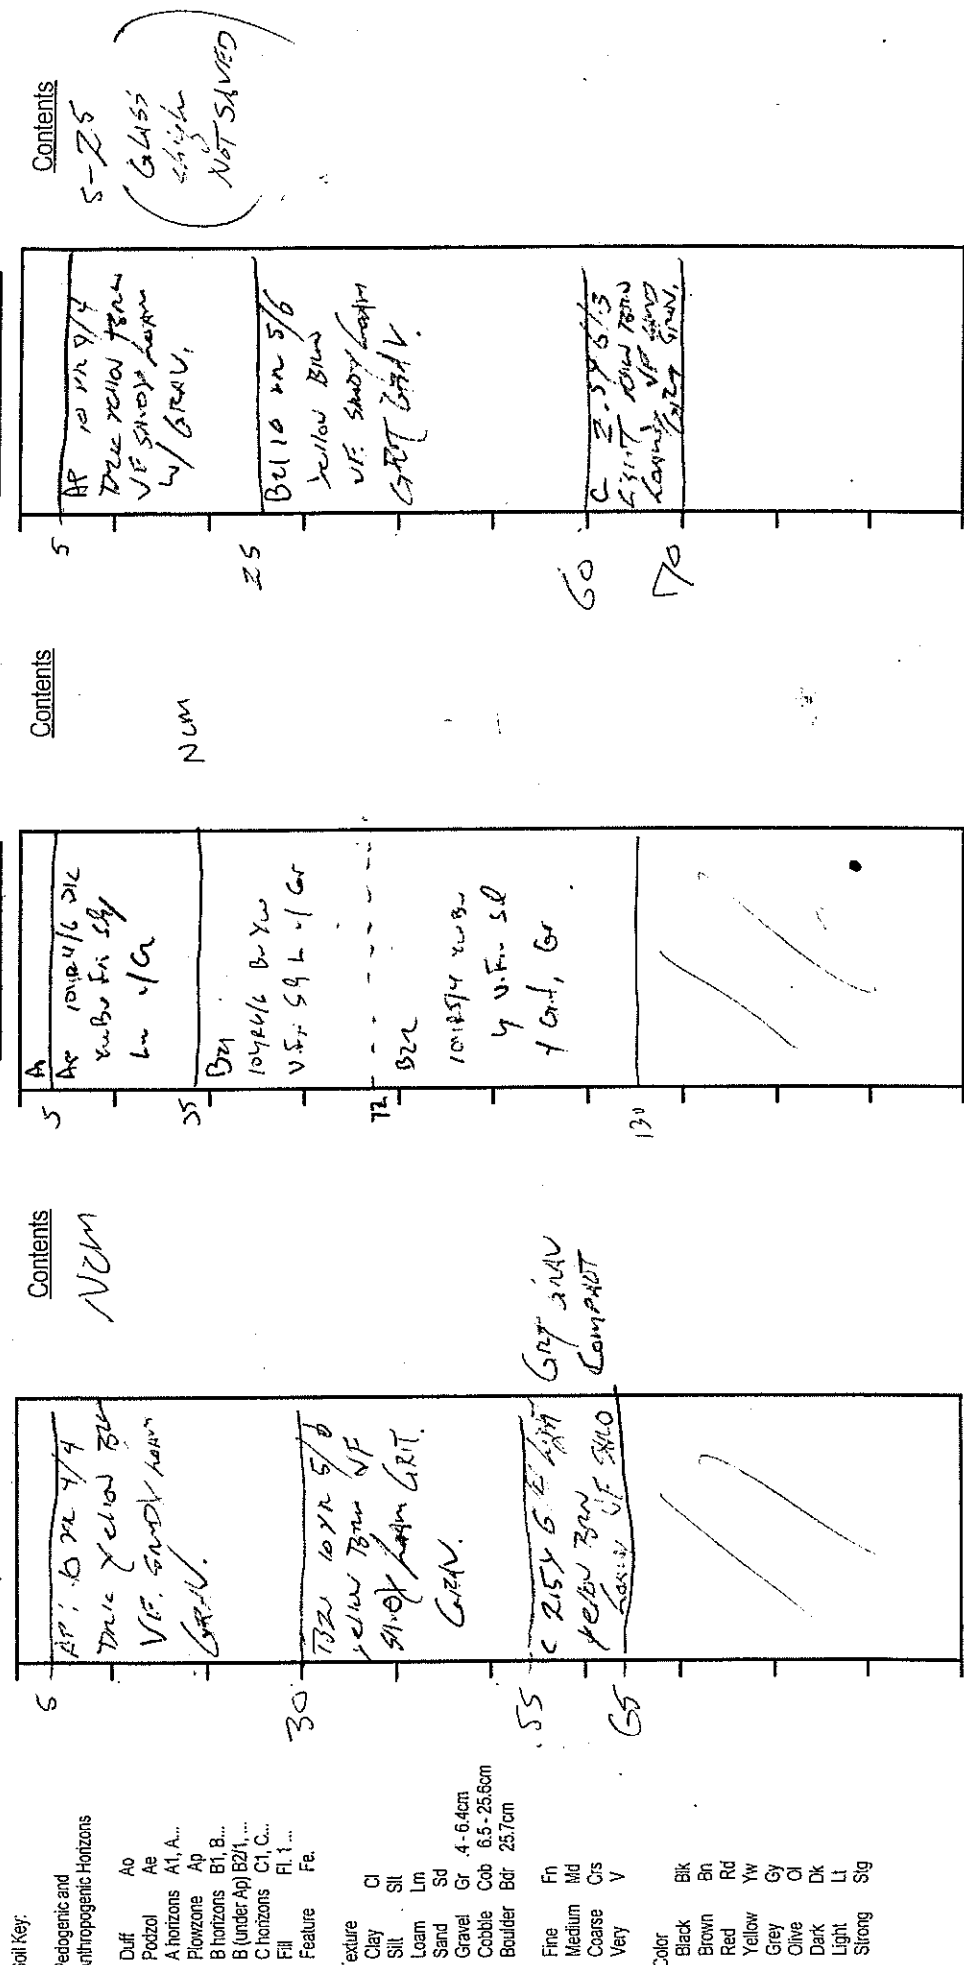 Soil Key:
Pedogenic and
Anthropogenic Horizons
Duff Ao
Podzol Ae
A horizons A1, A...
Plowzone Ap
B horizons B1, B...
B (under Ap) B2/1, ...
C horizons C1, C...
Fill Fl. 1 ...
Feature Fe.
Texture
Clay Cl
Silt Slt
Loam Lm
Sand Sd
Gravel Gr .4 - 6.4cm
Cobble Cob 6.5 - 25.6cm
Boulder Bdr 25.7cm
Fine Fn
Medium Md
Coarse Crs
Very V
Color
Black Blk
Brown Bn
Red Rd
Yellow Yw
Grey Gy
Olive Ol
Dark Dk
Light Lt
Strong Stg
Contents
NCM
AP: 10 YR 4/4
Yellow
VF. SANDY LOAM
GRAV.
30
B21 10 YR 5/6
Yellow BRN VF
SANDY LOAM GRIT.
GRAV.
55
C 2.5Y 6 LIGHT
Yellow BRN
VF SAND
65
GRIT GRAV
COMPACT
Contents
NCM
A
5
Ap 10YR4/6 DK
YwBn Fn Sdy
Lm w/Gr
35
B21
10YR4/6 Bn Yw
V.Fn Sdy L w/ Gr
72
B22
10YR5/4 YwBn
V.Fn Sd
Grit, Gr
130
Contents
5-25
(GLASS
NOT SAVED)
5
AP 10 YR 4/4
DARK YELLOW BRN
VF SANDY LOAM
W/ GRAV.
25
B21 10 YR 5/6
Yellow BRN
VF. SANDY LOAM
GRIT GRAV.
60
C 2.5Y 6/3
LIGHT BRN
LOAMY VF SAND
GRIT GRAV.
70